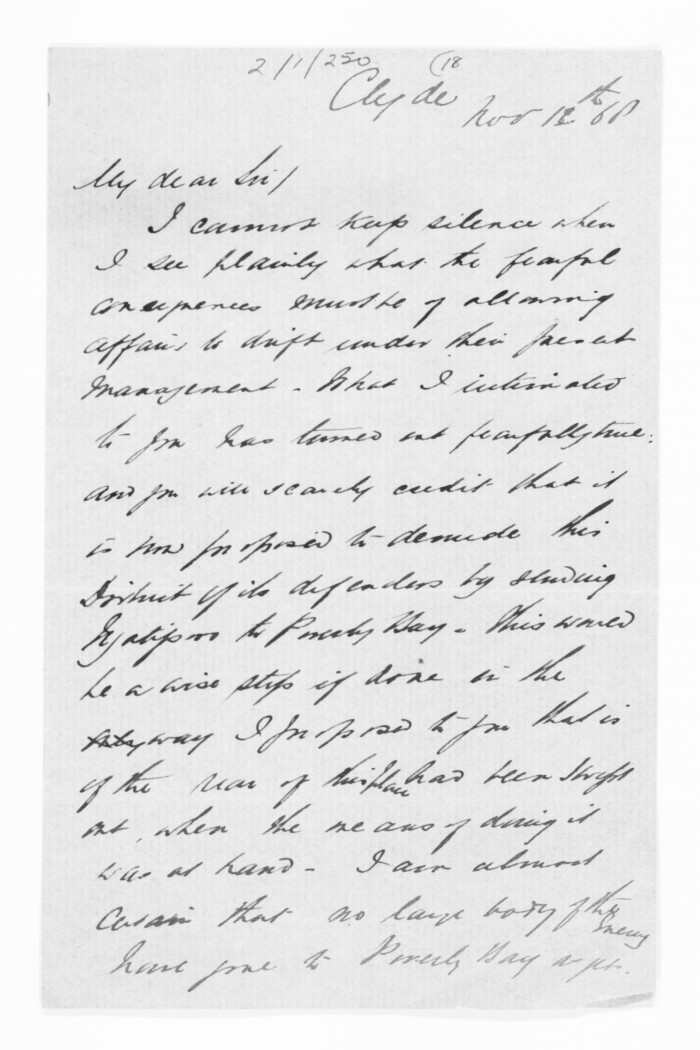 2/1/250 (18
Clyde
Nov 12th 68
My dear Sir/
I cannot keep silence when
I see plainly what the fearful
consequences must be of allowing
affairs to drift under their present
management - What I intimated
to you has turned out fearfully true:
and you will scarcely credit that it
is now proposed to denude this
District of its defenders by sending
Ngatiporo to Poverty Bay - This would
be a wise step if done in the
way I proposed to you that is
if the rear of this place had been swept
out, when the means of doing it
was at hand - I am almost
certain that no large body of the enemy
have gone to Poverty Bay as yet.